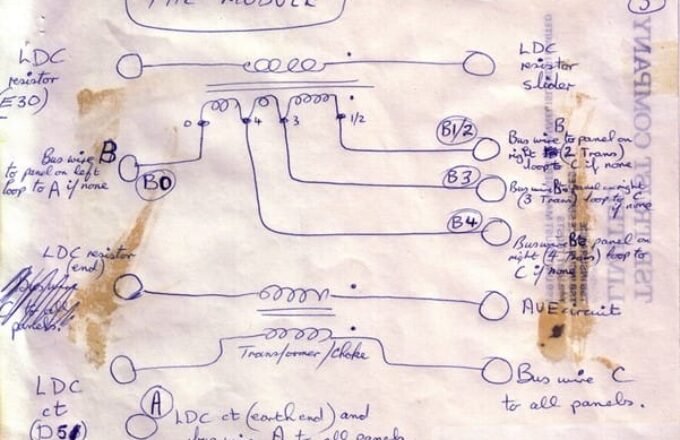 THE MODULE
3
LDC
resistor
(E30)
LDC
resistor
slider
0
4
3
1/2
B1/2
B
Bus wire to panel on
right (2 Trans)
loop to C if none
Bus wire B
to panel on left
loop to A if none
B0
B3
Bus wire B panel on right
(3 Trans) loop to C
if none
B4
Bus wire B panel on
right (4 Trans) loop to
C if none
LDC resistor
(end)
to all
panels.
AVE circuit
Transformer/choke
LDC
ct
(D51)
Bus wire C
to all panels.
A
LDC ct (earth end) and
bus wire A to all panels
TSB TRUST COMPANY
LIMITED